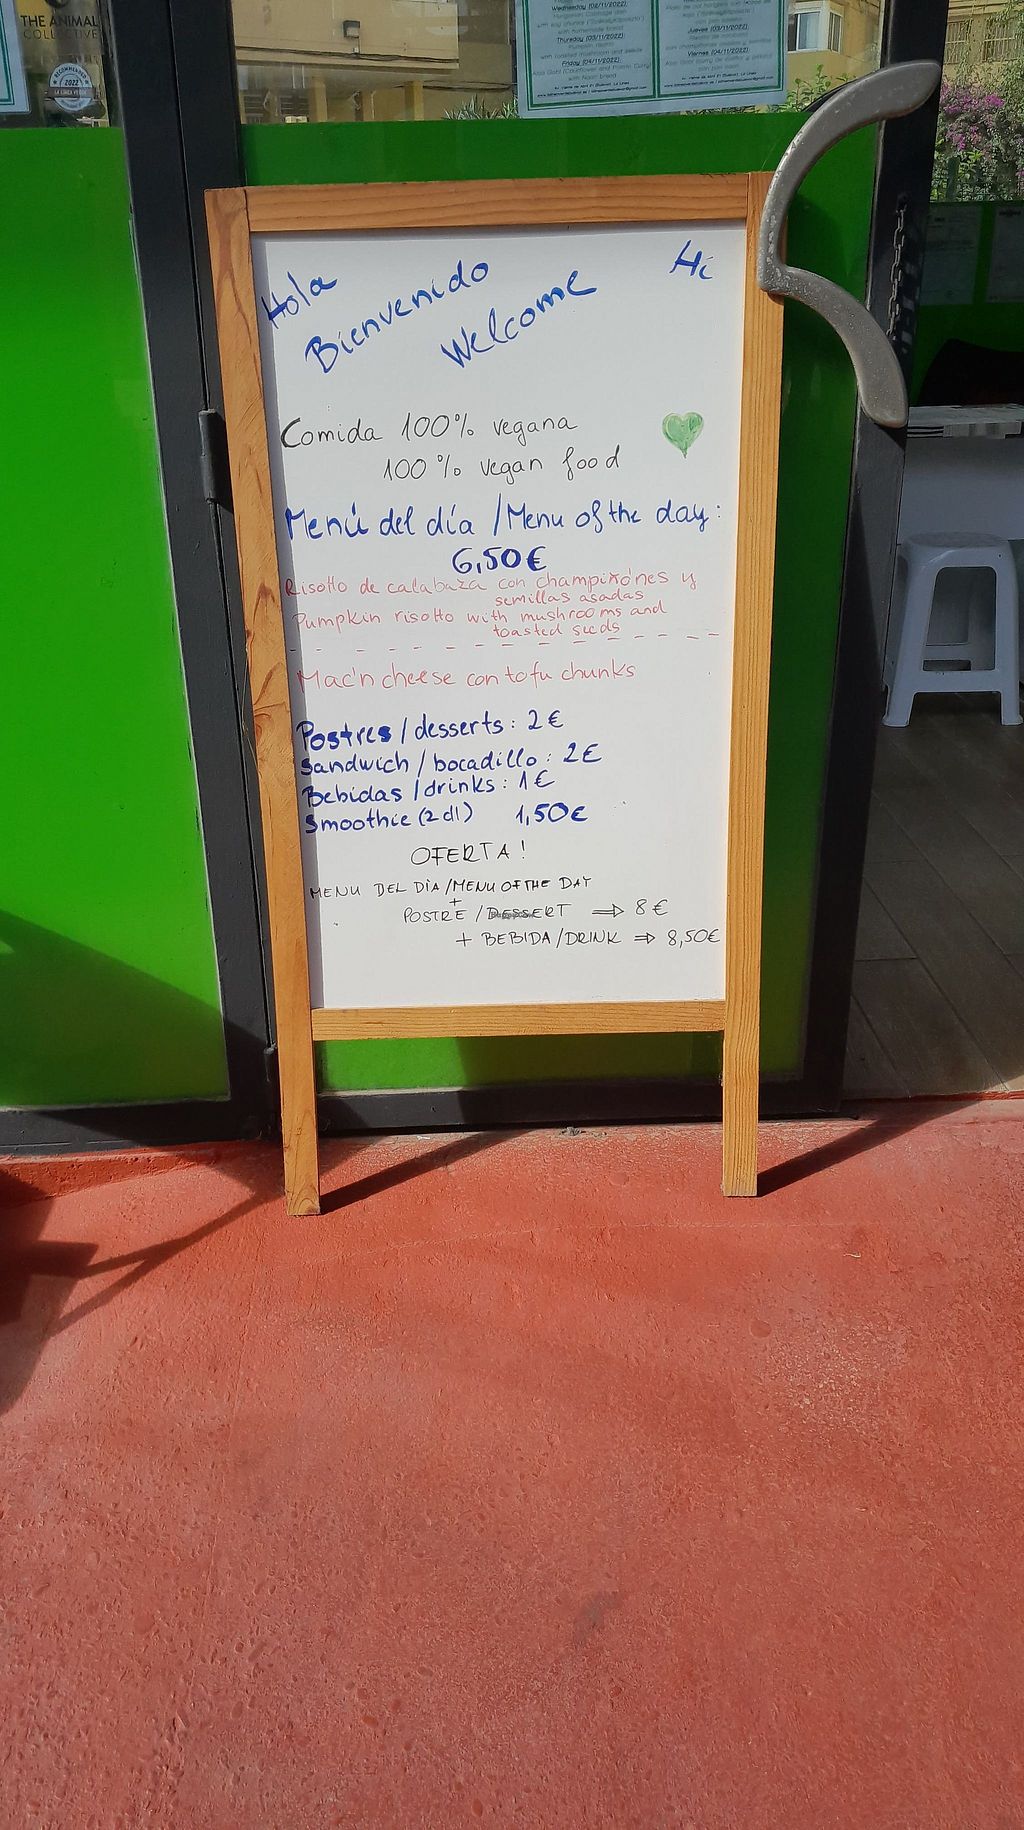 THE ANIMAL
COLLECTIVE
RECOMMENDED
2022
Wednesday (02/11/2022)
with homemade bread
Thursday (03/11/2022)
Pumpkin risotto
with toasted mushroom and seeds
Friday (04/11/2022)
Aloo Gobi (Cauliflower and Potato Curry)
with Naan bread
Jueves (03/11/2022)
Viernes (04/11/2022)
con pan naan
Hola
Bienvenido
Welcome
Hi
Comida 100% vegana
100% vegan food
Menú del día / Menu of the day:
6,50€
Risotto de calabaza con champixónes y
semillas asadas
Pumpkin risotto with mushrooms and
toasted seeds
Mac'n cheese con tofu chunks
Postres / desserts: 2€
Sandwich / bocadillo: 2€
Bebidas / drinks: 1€
Smoothie (2 dl) 1,50€
OFERTA!
MENU DEL DÌA / MENU OF THE DAY
+
POSTRE / DESSERT ⇒ 8€
+ BEBIDA / DRINK ⇒ 8,50€